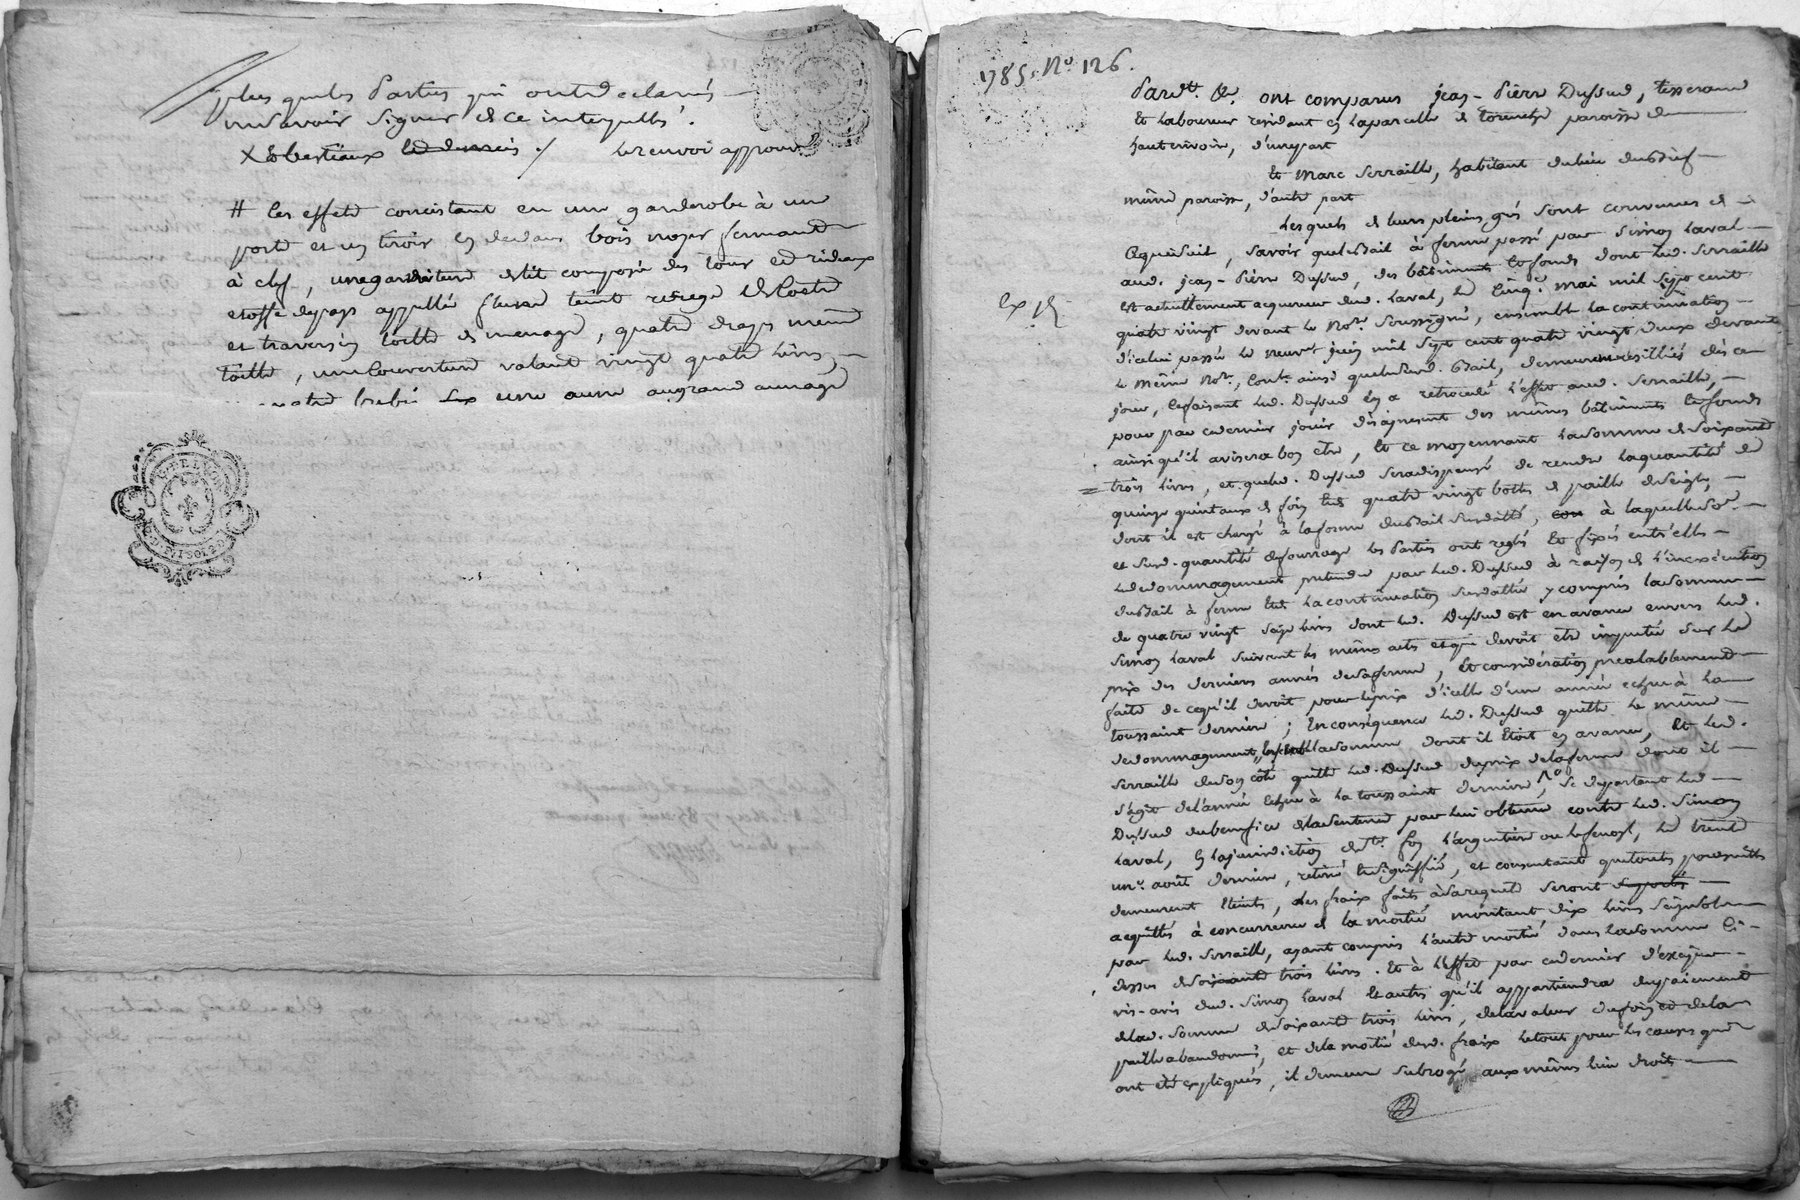 plus que les Parties qui ont declarés
ne savoir signer de ce interpellés.
X Et bestiaux led. demeis ./ le renvoi approuvé
# Les effets consistant en une garderobe à une
porte et un tiroir en dedans bois noyer fermante
à clef, une garniture de lit composée des tour et rideaux
etoffe de pays appellée teint rouge
et traversin toille de menage, quatre draps meme
toille, une Couverture valant vingt quatre livres,
quatre brebis une aune au grand aunage
1785. No. 126.
Pardt. &c. ont comparus jean-Pierre Dussud, tisserand
Et Laboureur residant en la parcelle de paroisse de
hauterivoire, d'une part
Et Marc Serraille, habitant du lieu du
même paroisse, d'autre part
Lesquels de leurs pleins grés sont convenus de
ce que suit, savoir que le Bail à ferme passé par Simon Laval
aud. jean-Pierre Dussud, des bâtiments & fonds dont led. Serraille
est actuellement acquereur dud. Laval, le cinq. mai mil sept cent
quatre vingt devant le Nore. soussigné, ensemble la continuation
Ex. R
d'icelui passée le neuve. juin mil sept cent quatre vingt deux devant
le même Nore., Cont. ainsi que led. Bail, demeurent resilliés dès ce
jour, ce faisant led. Dussud en a retrocedé l'effet aud. Serraille,
pour par ce dernier jouir dès à present des mêmes bâtiments & fonds
ainsi qu'il avisera bon etre, Et ce moyennant la somme de soixante
trois livres, et que led. Dussud sera dispensé de rendre la quantité de
quinze quintaux de foin & quatre vingt bottes de paille de seigle,
dont il est chargé à la forme du Bail susdatté, à laquelle so.e
et susd. quantité de fourrage les Parties ont reglé Et fixés entr'elles
le dedommagement pretendu par led. Dussud à raison de l'inexécution
du Bail à ferme & la continuation susdattée y compris la somme
de quatre vingt seize livres dont led. Dussud est en avance envers led.
Simon Laval suivant les mêmes actes et qui devoit etre imputée sur le
prix des dernieres années de sa ferme, Et consideration prealablement
faite de ce qu'il devoit pour le prix d'icelle d'une année echue à la
toussaint derniere; En conséquence led. Dussud quitte le même
dedommagement, la somme dont il Etoit en avance, Et led.
Serraille de son côté quitte led. Dussud du prix de la ferme dont il
s'agit de l'année Echue à la toussaint derniere, se departant led.
Dussud du benefice de la sentence par lui obtenue contre led. Simon
Laval, en la jurisdiction de St. foy l'argentiere ou le fenoyl, le trente
un.e août dernier, retiré & signiffiée, et consentant que toutes poursuittes
demeurent Eteints, les frais faits à sa requete seront supportés
acquittés à concurrence de la moitié, montant dix livres seize sols
par led. Serraille, ayant compris l'autre moitié dans la somme Ci-
dessus de soixante trois livres. Et à l'Effet par ce dernier d'exiger
vis-avis dud. Simon Laval & autres qu'il appartiendra du paiement
de lad. somme de soixante trois livres, de la valeur du foin et de la
paille abandonnés, et de la moitié desd. frais le tout pour les causes qui
ont été expliqués, il demeure subrogé aux mêmes lieu droits